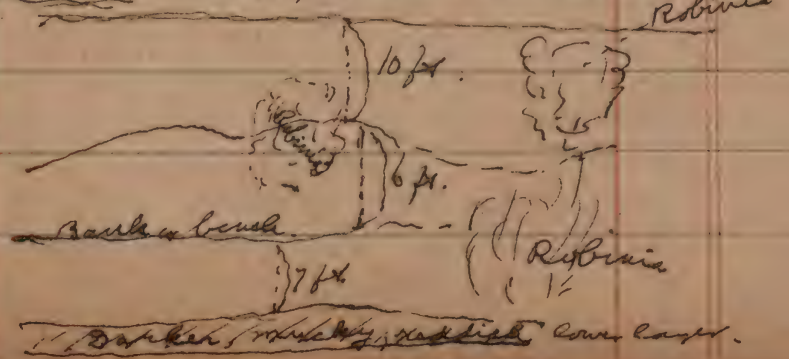 Robinia
10 ft.
Robinia
6 ft.
Bank or bench
Robinia
7 ft.
Darker, mucky, reddish lower layer.